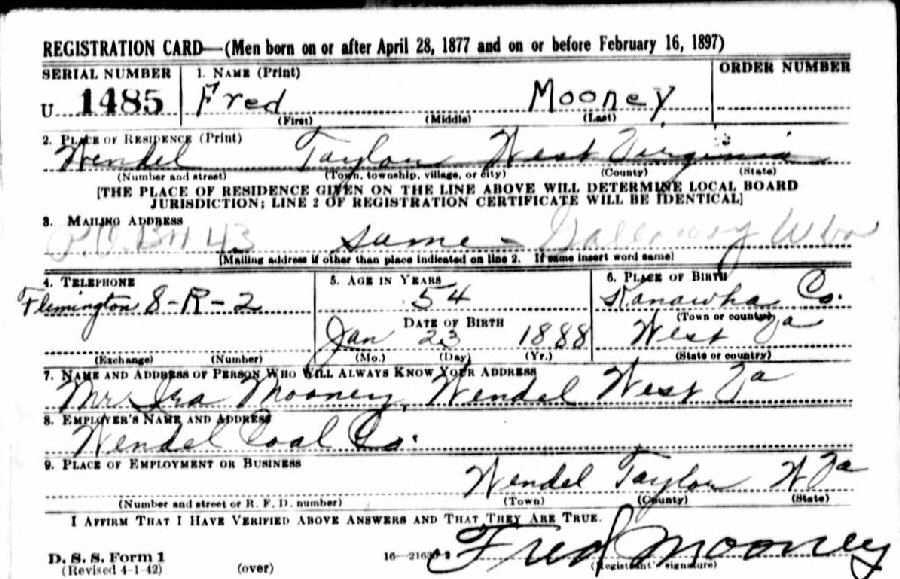 REGISTRATION CARD—(Men born on or after April 28, 1877 and on or before February 16, 1897)
SERIAL NUMBER 1. NAME (Print) ORDER NUMBER
U 1485 Fred Mooney
(First) (Middle) (Last)
2. PLACE OF RESIDENCE (Print)
Wendel Taylor West Virginia
(Number and street) (Town, township, village, or city) (County) (State)
[THE PLACE OF RESIDENCE GIVEN ON THE LINE ABOVE WILL DETERMINE LOCAL BOARD
JURISDICTION; LINE 2 OF REGISTRATION CERTIFICATE WILL BE IDENTICAL]
3. MAILING ADDRESS
P.O. Box 43 same - Galloway W Va
[Mailing address if other than place indicated on line 2. If same insert word same]
4. TELEPHONE 5. AGE IN YEARS 6. PLACE OF BIRTH
Flemington 8-R-2 54 Kanawha Co.
DATE OF BIRTH (Town or county)
Jan 23 1888 West Va
(Exchange) (Number) (Mo.) (Day) (Yr.) (State or country)
7. NAME AND ADDRESS OF PERSON WHO WILL ALWAYS KNOW YOUR ADDRESS
Mr Ira Mooney, Wendel West Va
8. EMPLOYER'S NAME AND ADDRESS
Wendel Coal Co.
9. PLACE OF EMPLOYMENT OR BUSINESS
Wendel Taylor W Va
(Number and street or R. F. D. number) (Town) (County) (State)
I AFFIRM THAT I HAVE VERIFIED ABOVE ANSWERS AND THAT THEY ARE TRUE.
Fred Mooney
D. S. S. Form 1 (Registrant's signature)
(Revised 4-1-42) (over)